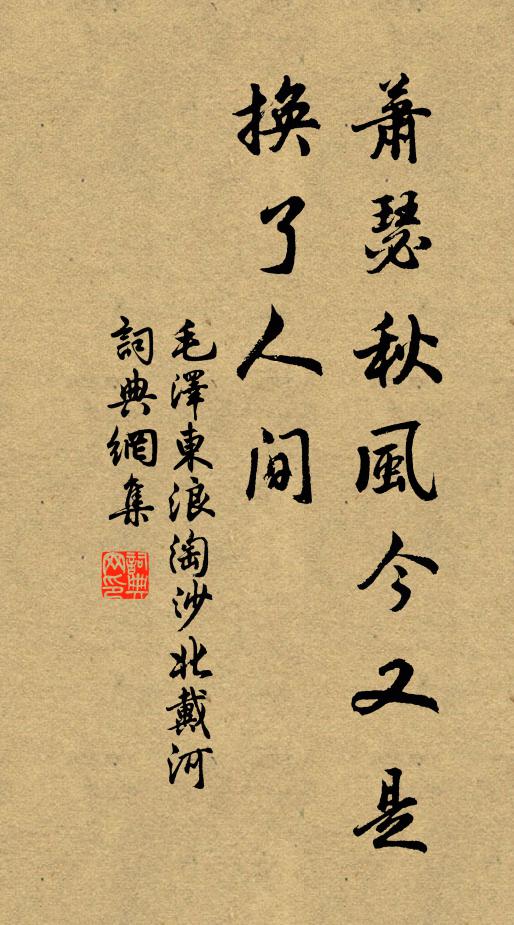 蕭瑟秋風今又是
換了人間
毛澤東浪淘沙北戴河
詞典網集
詞典
网印